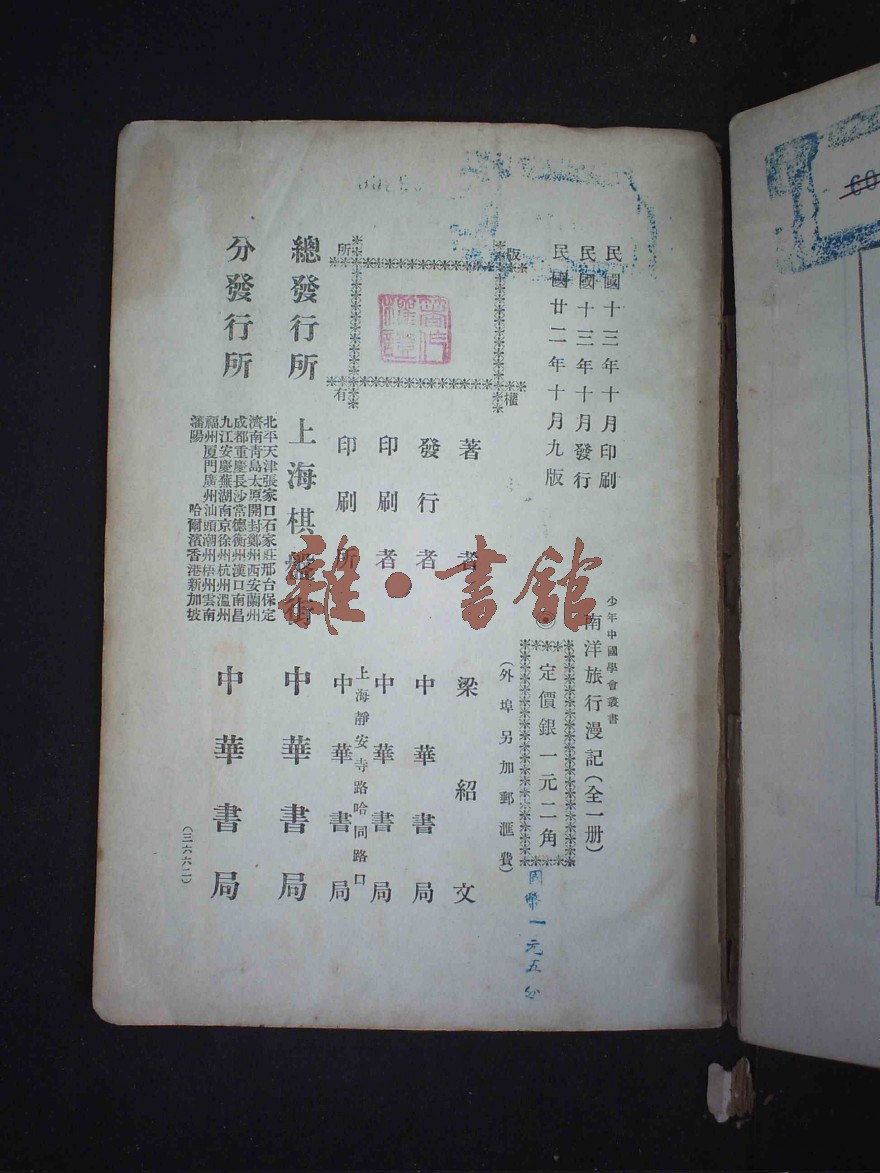 民國十三年十月印刷
民國十三年十月發行
民國廿二年十月九版
少年中國學會叢書
南洋旅行漫記(全一册)
◎定價銀一元二角
(外埠另加郵滙費)
國幣一元五分
版權所有
著者 梁紹文
發行者 中華書局
印刷者 中華書局
上海靜安寺路哈同路口
印刷所 中華書局
總發行所 上海棋盤街 中華書局
分發行所
北平天津張家口石家莊邢台保定
濟南青島太原開封鄭州西安蘭州
成都重慶長沙常德衡州漢口南昌
九江安慶蕪湖南京徐州杭州溫州
福州厦門廣州汕頭潮州梧州雲南
瀋陽 哈爾濱香港新加坡
中華書局
(三六六二)
雜·書館
60